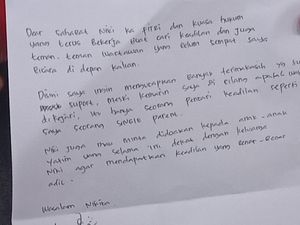 Dear Sahabat Niki ka Fitri dan kuasa hukum
yang terus Bekerja Buat cari keadilan dan juga
teman-teman wartawan yang belum sempat saya
Bicara di depan kalian.
Disini saya ingin mengucapkan Banyak terimakasih yg su
support, meski kemarin saya di bilang apalah
dikejari, itu hanya seorang pencari keadilan seperti
saya seorang SINGLE parent.
Niki juga mau minta didoakan kepada anak-anak
Yatim yang selama ini dekat dengan keluarga
Niki agar mendapatkan keadilan yang Benar-Benar
adil.
Wasalam Nikita